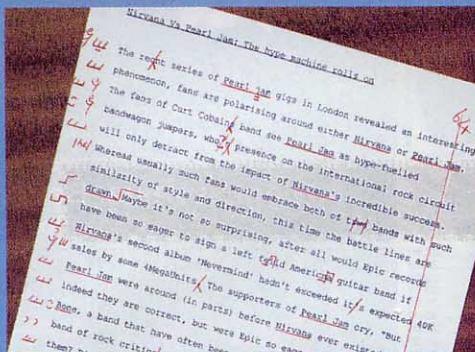 Nirvana Vs Pearl Jam: The hype machine rolls on
The recnt series of Pearl jam gigs in London revealed an interesting
phenomenon, fans are polarising around either Nirvana or Pearl Jam.
The fans of Curt Cobains band see Pearl Jam as hype-fuelled
bandwagon jumpers, who's presence on the international rock circuit
will only detract from the impact of Nirvana's incredible success.
Whereas usually such fans would embrace both bands with such
similarity of style and direction, this time the battle lines are
drawn. Maybe it's not so surprising, after all would Epic records
have been so eager to sign a left American guitar band if
Nirvana's second album 'Nevermind' hadn't exceeded it's expected 40K
sales by some 4MegaUnits. The supporters of Pearl Jam cry, "But
Pearl Jam were around (in parts) before Nirvana ever
indeed they are correct, but were Epic so
Bone, a band that have often been
band of rock
them?